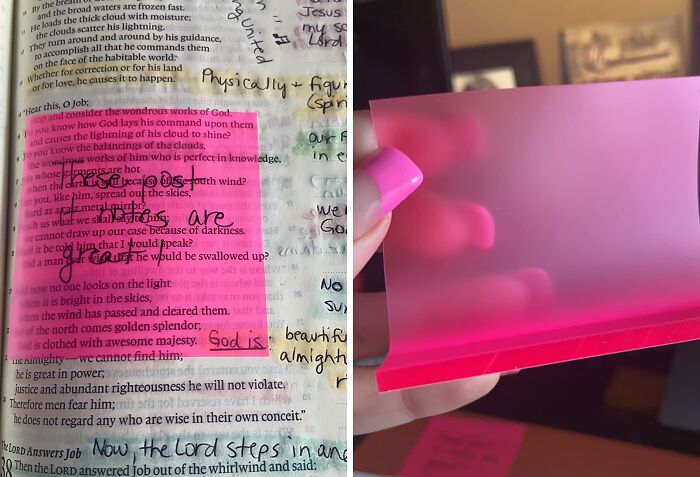 By the breath
and the broad waters are frozen fast.
He loads the thick cloud with moisture;
the clouds scatter his lightning.
They turn around and around by his guidance,
to accomplish all that he commands them
on the face of the habitable world.
Whether for correction or for his land
or for love, he causes it to happen.
United
Jesus
my
Lord.
Physically + figur
(spir
"Hear this, O Job;
and consider the wondrous works of God.
you know how God lays his command upon them
and causes the lightning of his cloud to shine?
you know the balancings of the clouds,
the wondrous works of him who is perfect in knowledge,
you whose garments are hot
when the earth is still because of the south wind?
you, like him, spread out the skies,
hard as a cast metal mirror?
us what we shall say to him;
we cannot draw up our case because of darkness.
it be told him that I would speak?
a man ever wish that he would be swallowed up?
These post
it notes are
great!
our
in e
we
God
now no one looks on the light
when it is bright in the skies,
when the wind has passed and cleared them.
of the north comes golden splendor;
God is clothed with awesome majesty. God is:
No
beautif
The Almighty—we cannot find him; almight
he is great in power;
justice and abundant righteousness he will not violate.
Therefore men fear him;
he does not regard any who are wise in their own conceit."
The LORD Answers Job Now, the Lord steps in and
38 Then the LORD answered Job out of the whirlwind and said: